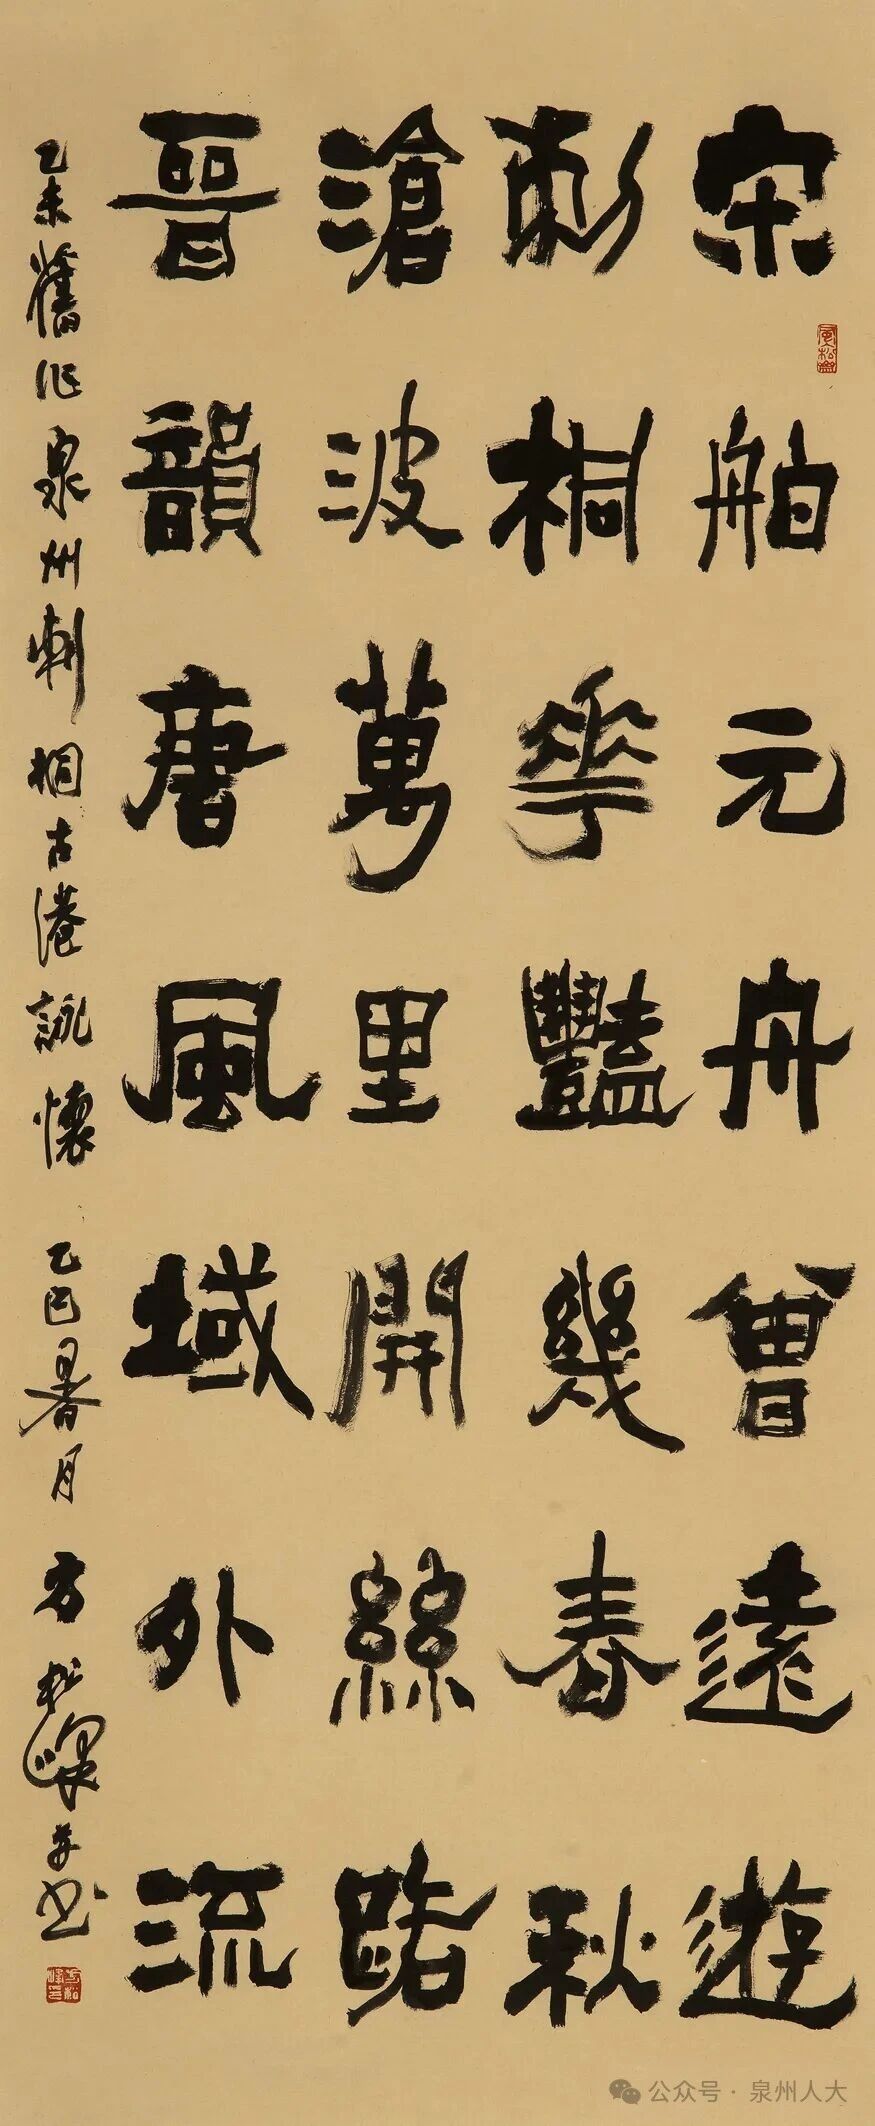 宋舶元舟曾遠遊
刺桐華豔幾春秋
滄波萬里開絲路
晉韻唐風域外流
乙未舊作泉州刺桐古港詠懷 乙巳暑月 方松峰并書
公众号·泉州人大